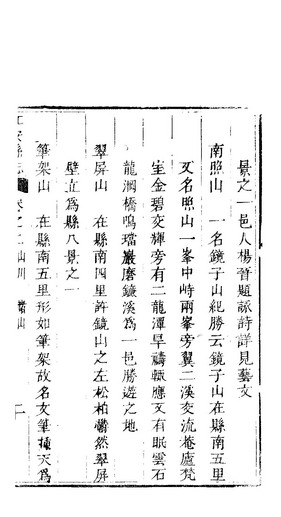 景之一邑人楊晉題詠詩詳見藝文
南照山　一名鏡子山紀勝云鏡子山在縣南五里
又名照山一峯中峙兩峯旁翼二溪交流菴廬梵
宝金碧交輝旁有二龍潭旱禱輒應又有眠雲石
龍洞橋鳴璫巖磨鐮溪爲一邑勝遊之地
翠屏山　在縣南四里許鏡山之左松柏鬱然翠屏
壁立爲縣八景之一
筆架山　在縣南五里形如筆架故名文筆揷天爲
卷之二山川　諸山　二